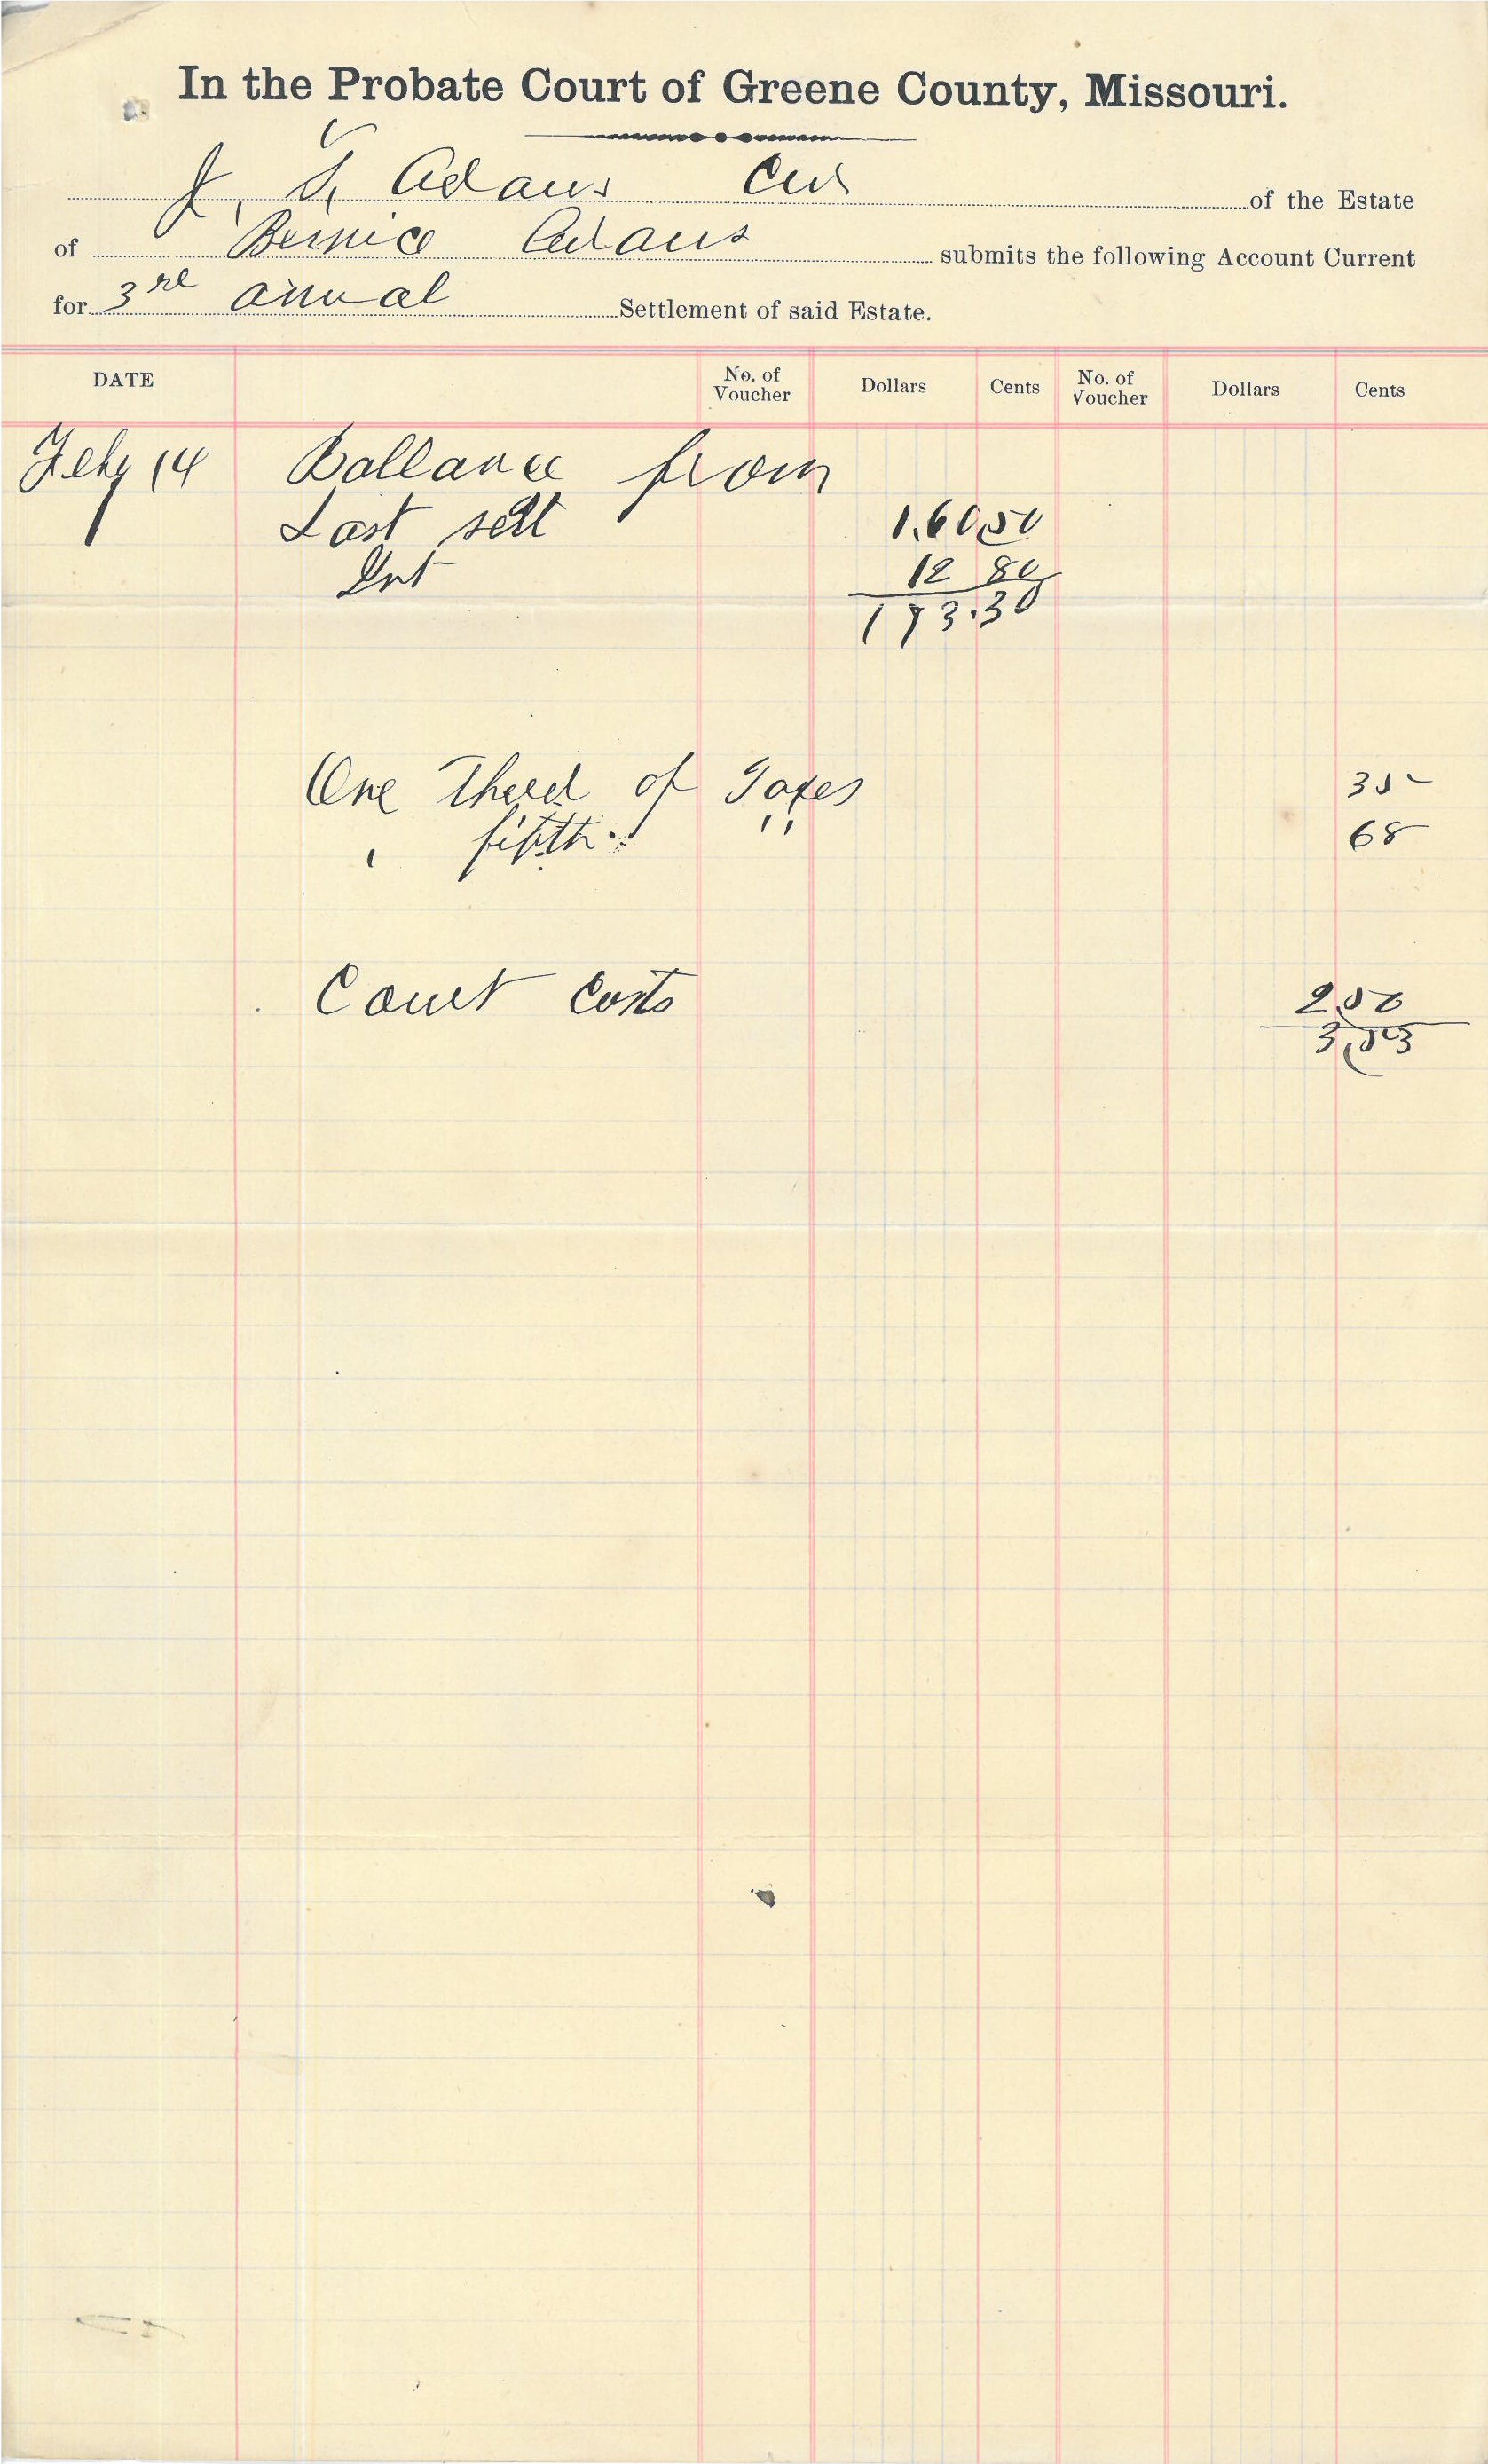 In the Probate Court of Greene County, Missouri.
J. T. Adams Cur of the Estate
of Bernice Adams submits the following Account Current
for 3rd annual Settlement of said Estate.
DATE No. of Voucher Dollars Cents No. of Voucher Dollars Cents
Feby 14 Ballance from
Last sett 1.60.50
Int 12 80
173.30
One Therd of Taxes 35
" fifth " 68
Court Costs 2.00
3.03